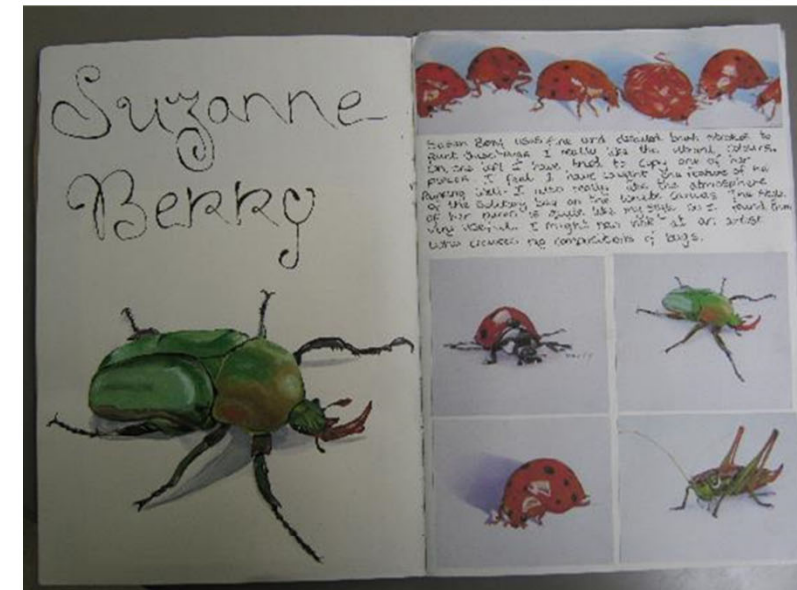 Suzanne
Berry
Berry uses fine and detailed brush strokes to
paint I really like the vibrant colours.
On the left I have tried to copy one of her
pieces. I feel I have caught the texture of the
well. I also really like the atmosphere
of the solitary bug on the white canvas. The style
of her pieces is quite like my style so I found them
very useful. I might now look at an artist
who crowded compositions of bugs.